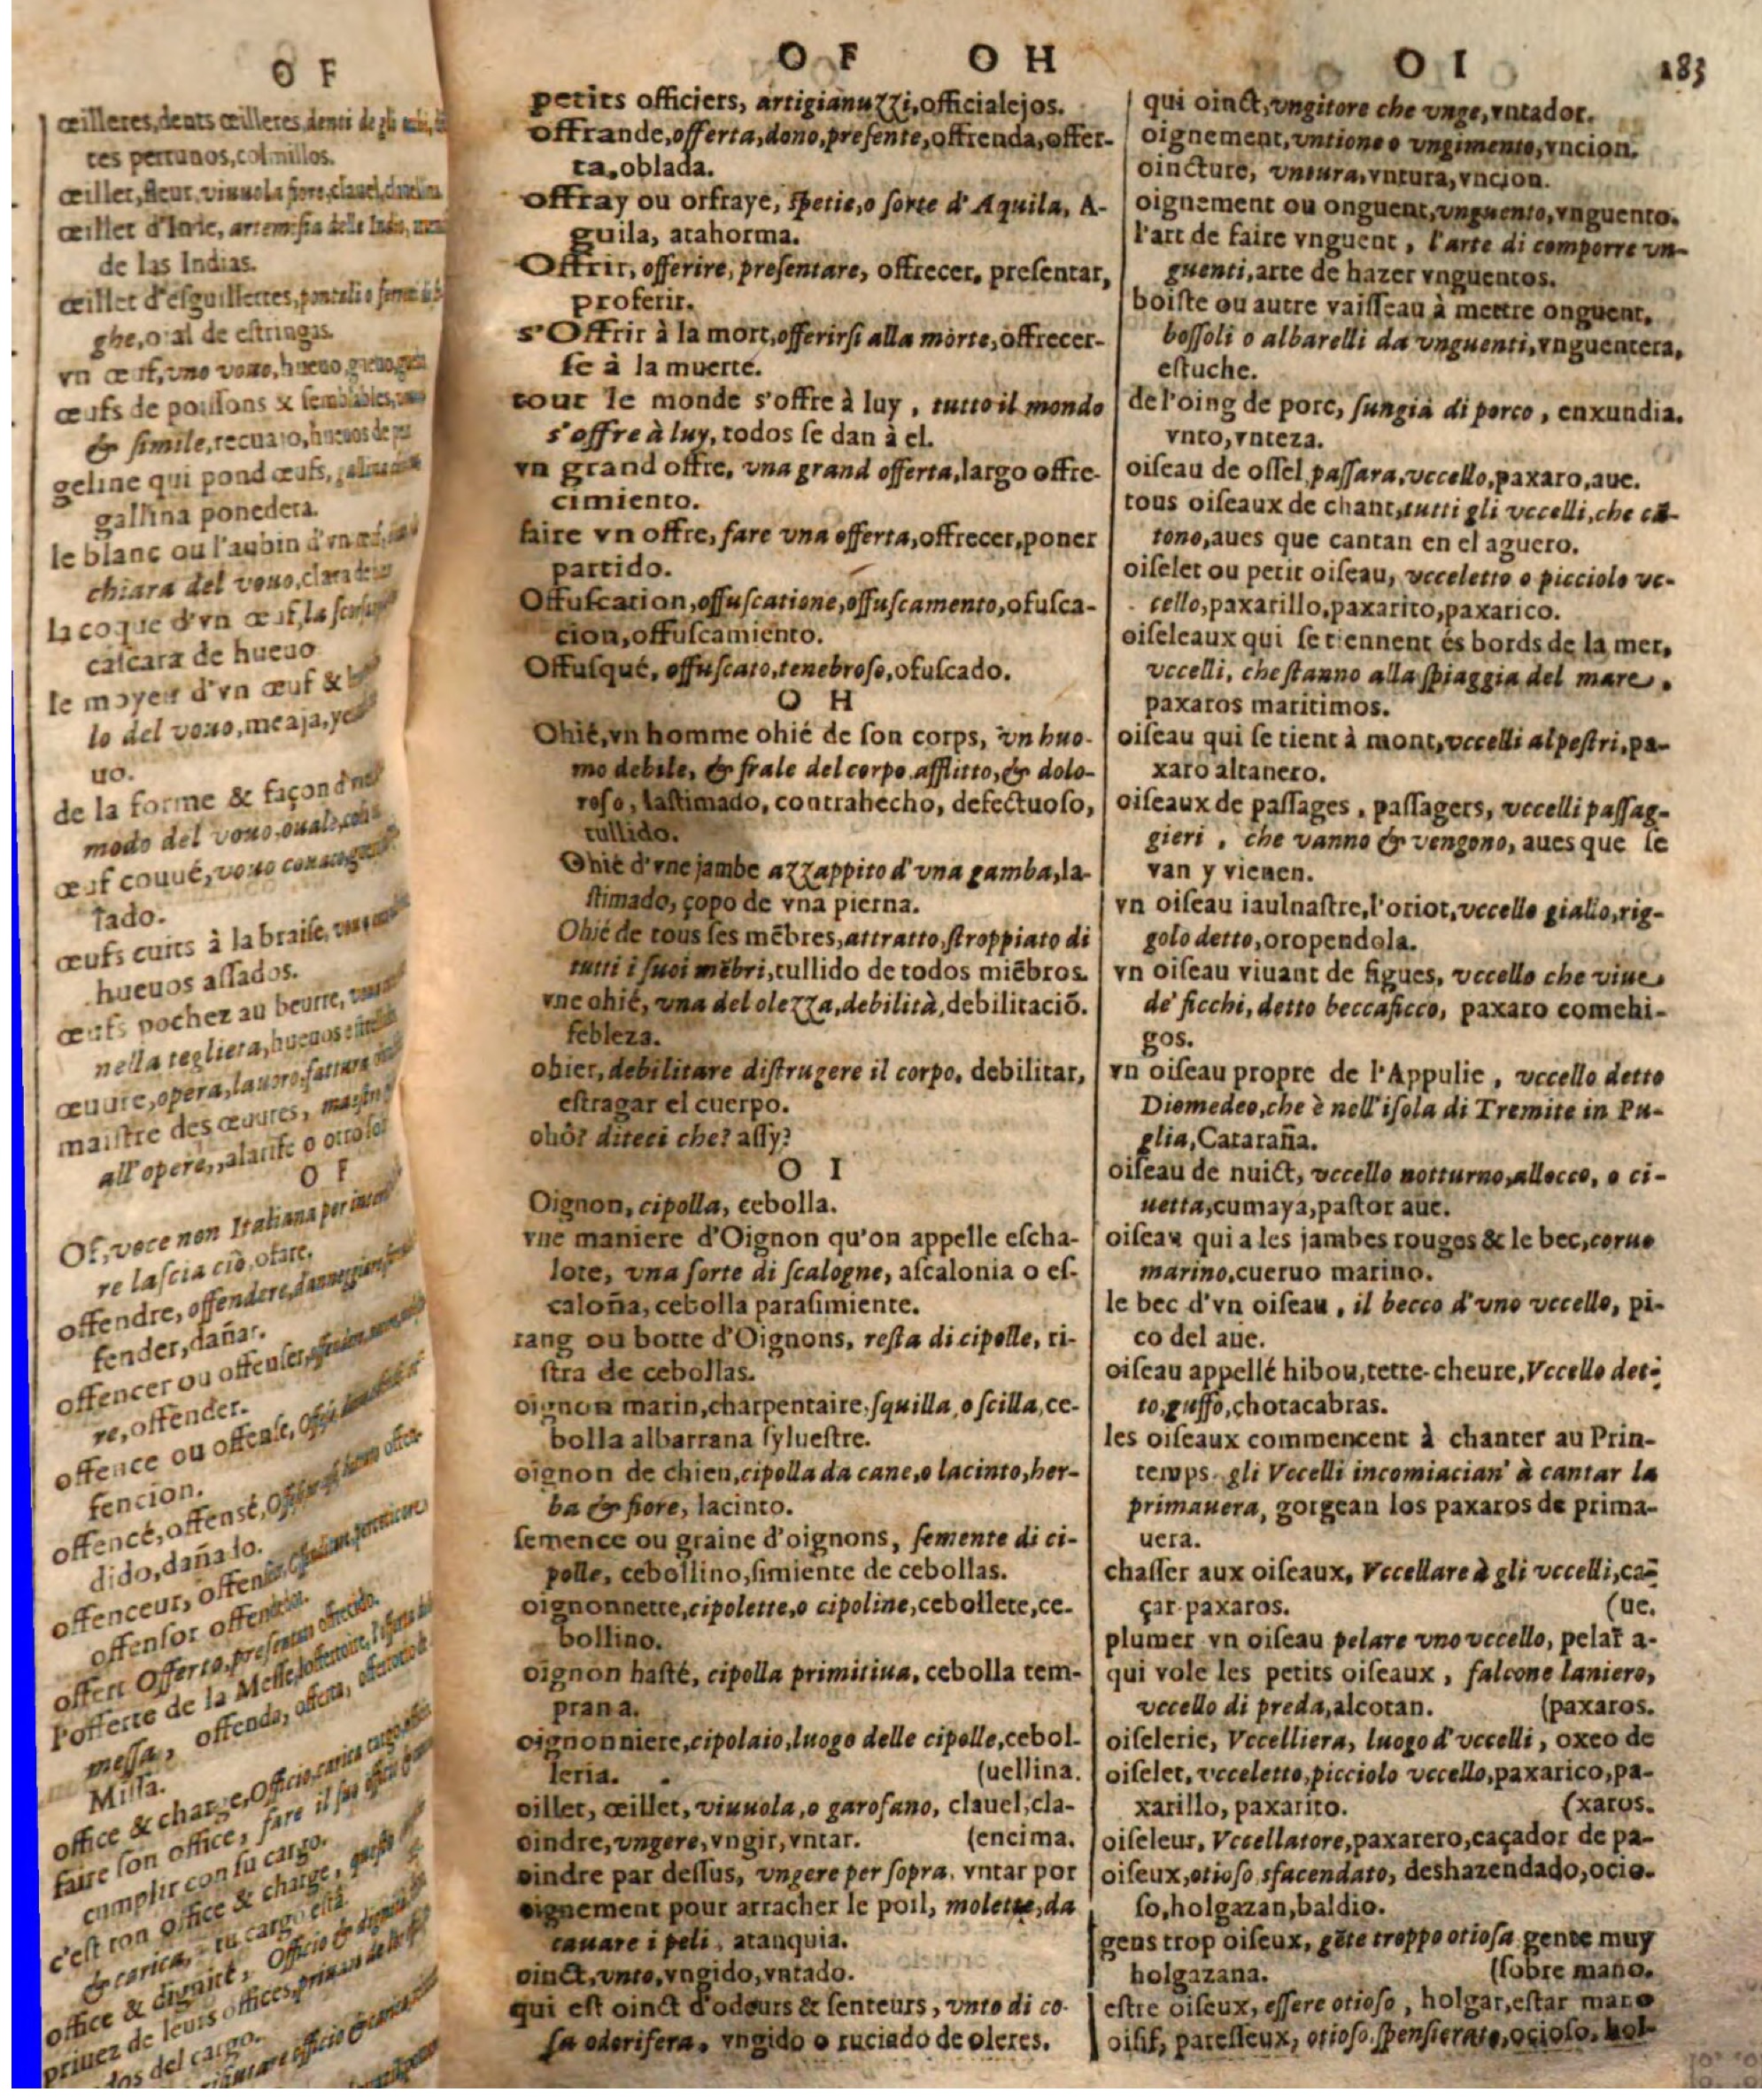 O F
œilleres, dents œilleres, denti de gli
tes perrunos, colmillos.
œillet, fleur, viuuola fiore, clauel, clauellina
œillet d'Inde, artemisia delle Indis,
de las Indias.
œillet d'esguillettes, pontali o
ghe, o al de estringas.
vn œuf, vno vouo, hueuo, gueuo,
œufs de poissons & semblables,
& simile, recuaio, hueuos de
geline qui pond œufs,
gallina ponedera.
le blanc ou l'aubin d'vn œuf,
chiara del vouo, clara de
la coque d'vn œuf, la
cascara de hueuo
le moyeu d'vn œuf &
lo del vouo, meaja,
uo.
de la forme & façon d'vn
modo del vouo, ouale,
œuf couué, vouo
rado.
œufs cuits à la braise,
hueuos assados.
œufs pochez au beurre,
nella tegliera, hueuos
œuure, opera, lauoro, fattura
maistre des œuures,
all'opere,, alarife o otro
O F
Of, voce non Italiana per
re lascia ciò, ofare.
offendre, offendere, danneggiare,
fender, dañar.
offencer ou offenser,
re, offender.
offence ou offense,
fencion.
offencé, offensé,
dido, dañado.
offenceur,
offensor offendedor.
offert Offerto, presentato offrecido.
l'offerte de la Messe,
messa, offenda, offerta,
Missa.
office & charge, Officio, carica cargo
faire son office, fare il suo
cumplir con su cargo.
c'est ton office & charge, questo
& carica, tu cargo està.
office & dignité, Officio &
priuez de leurs offices,
dos del cargo.
O F O H
petits officiers, artigianuzzi, officialejos.
offrande, offerta, dono, presente, offrenda, offer-
ta, oblada.
offray ou orfraye, spetie, o sorte d'Aquila, A-
guila, atahorma.
Offrir, offerire, presentare, offrecer, presentar,
proferir.
s'Offrir à la mort, offerirsi alla morte, offrecer-
se à la muerte.
tout le monde s'offre à luy, tutto il mondo
s'offre à luy, todos se dan à el.
vn grand offre, vna grand offerta, largo offre-
cimiento.
faire vn offre, fare vna offerta, offrecer, poner
partido.
Offuscation, offuscatione, offuscamento, ofusca-
cion, offuscamiento.
Offusqué, offuscato, tenebroso, ofuscado.
O H
Ohié, vn homme ohié de son corps, vn huo-
mo debile, & frale del corpo, afflitto, & dolo-
roso, lastimado, contrahecho, defectuoso,
tullido.
Ohié d'vne jambe azzappito d'vna gamba, la-
stimado, çopo de vna pierna.
Ohié de tous ses mẽbres, attratto, stroppiato di
tutti i suoi mẽbri, tullido de todos miẽbros.
vne ohié, vna del olezza, debilità, debilitaciõ.
febleza.
ohier, debilitare distrugere il corpo, debilitar,
estragar el cuerpo.
ohô? diteci che? assy?
O I
Oignon, cipolla, cebolla.
vne maniere d'Oignon qu'on appelle escha-
lote, vna sorte di scalogne, ascalonia o es-
caloña, cebolla parasimiente.
rang ou botte d'Oignons, resta di cipolle, ri-
stra de cebollas.
oignon marin, charpentaire, squilla, o scilla, ce-
bolla albarrana syluestre.
oignon de chien, cipolla da cane, o Iacinto, her-
ba & fiore, Iacinto.
semence ou graine d'oignons, semente di ci-
polle, cebollino, simiente de cebollas.
oignonnette, cipolette, o cipoline, cebollete, ce-
bollino.
oignon hasté, cipolla primitiua, cebolla tem-
prana.
oignonniere, cipolaio, luogo delle cipolle, cebol-
leria. (uellina.
oillet, œillet, viuuola, o garofano, clauel, cla-
oindre, vngere, vngir, vntar. (encima.
oindre par dessus, vngere per sopra, vntar por
oignement pour arracher le poil, molette, da
cauare i peli, atanquia.
oinct, vnto, vngido, vntado.
qui est oinct d'odeurs & senteurs, vnto di co-
sa oderifera, vngido o ruciado de oleres.
O I 183
qui oinct, vngitore che vnge, vntador.
oignement, vntione o vngimento, vncion.
oincture, vntura, vntura, vncion.
oignement ou onguent, vnguento, vnguento.
l'art de faire vnguent, l'arte di comporre vn-
guenti, arte de hazer vnguentos.
boiste ou autre vaisseau à mettre onguent,
bossoli o albarelli da vnguenti, vnguentera,
estuche.
de l'oing de porc, sungia di porco, enxundia.
vnto, vnteza.
oiseau de ossel, passara, vccello, paxaro, aue.
tous oiseaux de chant, tutti gli vccelli, che cã-
tono, aues que cantan en el aguero.
oiselet ou petit oiseau, vcceletto o picciolo vc-
cello, paxarillo, paxarito, paxarico.
oiseleaux qui se tiennent és bords de la mer,
vccelli, che stanno alla spiaggia del mare,
paxaros maritimos.
oiseau qui se tient à mont, vccelli alpestri, pa-
xaro altanero.
oiseaux de passages, passagers, vccelli passag-
gieri, che vanno & vengono, aues que se
van y vienen.
vn oiseau iaulnastre, l'oriot, vccello giallo, rig-
golo detto, oropendola.
vn oiseau viuant de figues, vccello che viue
de' ficchi, detto beccaficco, paxaro comehi-
gos.
vn oiseau propre de l'Appulie, vccello detto
Diomedeo, che è nell'isola di Tremite in Pu-
glia, Cataraña.
oiseau de nuict, vccello notturno, allocco, o ci-
uetta, cumaya, pastor aue.
oiseau qui a les jambes rouges & le bec, coruo
marino, cueruo marino.
le bec d'vn oiseau, il becco d'vno vccello, pi-
co del aue.
oiseau appellé hibou, tette-cheure, Vccello det-
to, guffo, chotacabras.
les oiseaux commencent à chanter au Prin-
temps, gli Vccelli incomiacian' à cantar la
primauera, gorgean los paxaros de prima-
uera.
chasser aux oiseaux, Vccellare à gli vccelli, ca-
çar paxaros. (ue.
plumer vn oiseau pelare vno vccello, pelar a-
qui vole les petits oiseaux, falcone laniero,
vccello di preda, alcotan. (paxaros.
oiselerie, Vccelliera, luogo d'vccelli, oxeo de
oiselet, vcceletto, picciolo vccello, paxarico, pa-
xarillo, paxarito. (xaros.
oiseleur, Vccellatore, paxarero, caçador de pa-
oiseux, otioso, sfacendato, deshazendado, ocio-
so, holgazan, baldio.
gens trop oiseux, gẽte troppo otiosa gente muy
holgazana. (sobre mano.
estre oiseux, essere otioso, holgar, estar mano
oisif, paresseux, otioso, spensierato, ocioso, hol-